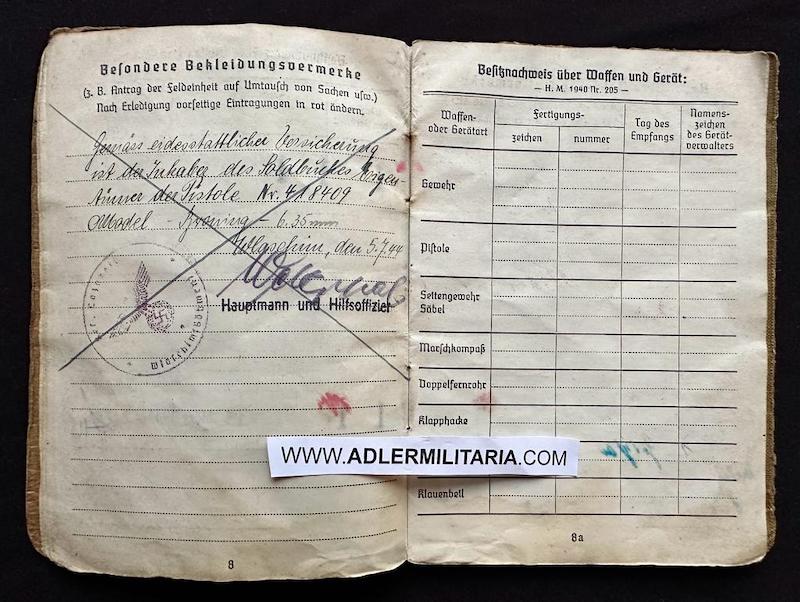 Besondere Bekleidungsvermerke
(z. B. Antrag der Feldeinheit auf Umtausch von Sachen usw.)
Nach Erledigung vorseitige Eintragungen in rot ändern.
Gemäss eidesstattlicher Versicherung
ist der Inhaber des Soldbuches
der Pistole Nr. 418409
Model - Broning - 6.35 mm
den 5.7.44
Hauptmann und Hilfsoffizier
8
Besitznachweis über Waffen und Gerät:
— H. M. 1940 Nr. 205 —
Waffen- oder Gerätart
Fertigungs-
zeichen
nummer
Tag des Empfangs
Namens- zeichen des Gerät- verwalters
Gewehr
Pistole
Seitengewehr
Säbel
Marschkompaß
Doppelfernrohr
Klapphacke
Klauenbeil
8a
WWW.ADLERMILITARIA.COM